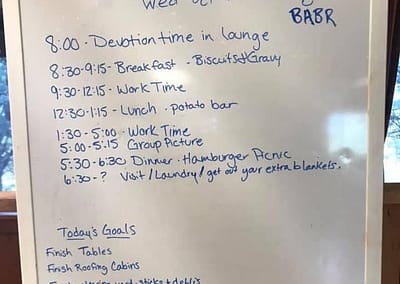 Wed
BABR
8:00 - Devotion time in lounge
8:30-9:15 - Breakfast - Biscuits & Gravy
9:30-12:15 - Work Time
12:30-1:15 - Lunch - potato bar
1:30 - 5:00 - Work Time
5:00 - 5:15 Group Picture
5:30 - 6:30 Dinner - Hamburger Picnic
6:30 - ? Visit / Laundry / get out your extra blankets.
Today's Goals
Finish Tables
Finish Roofing Cabins